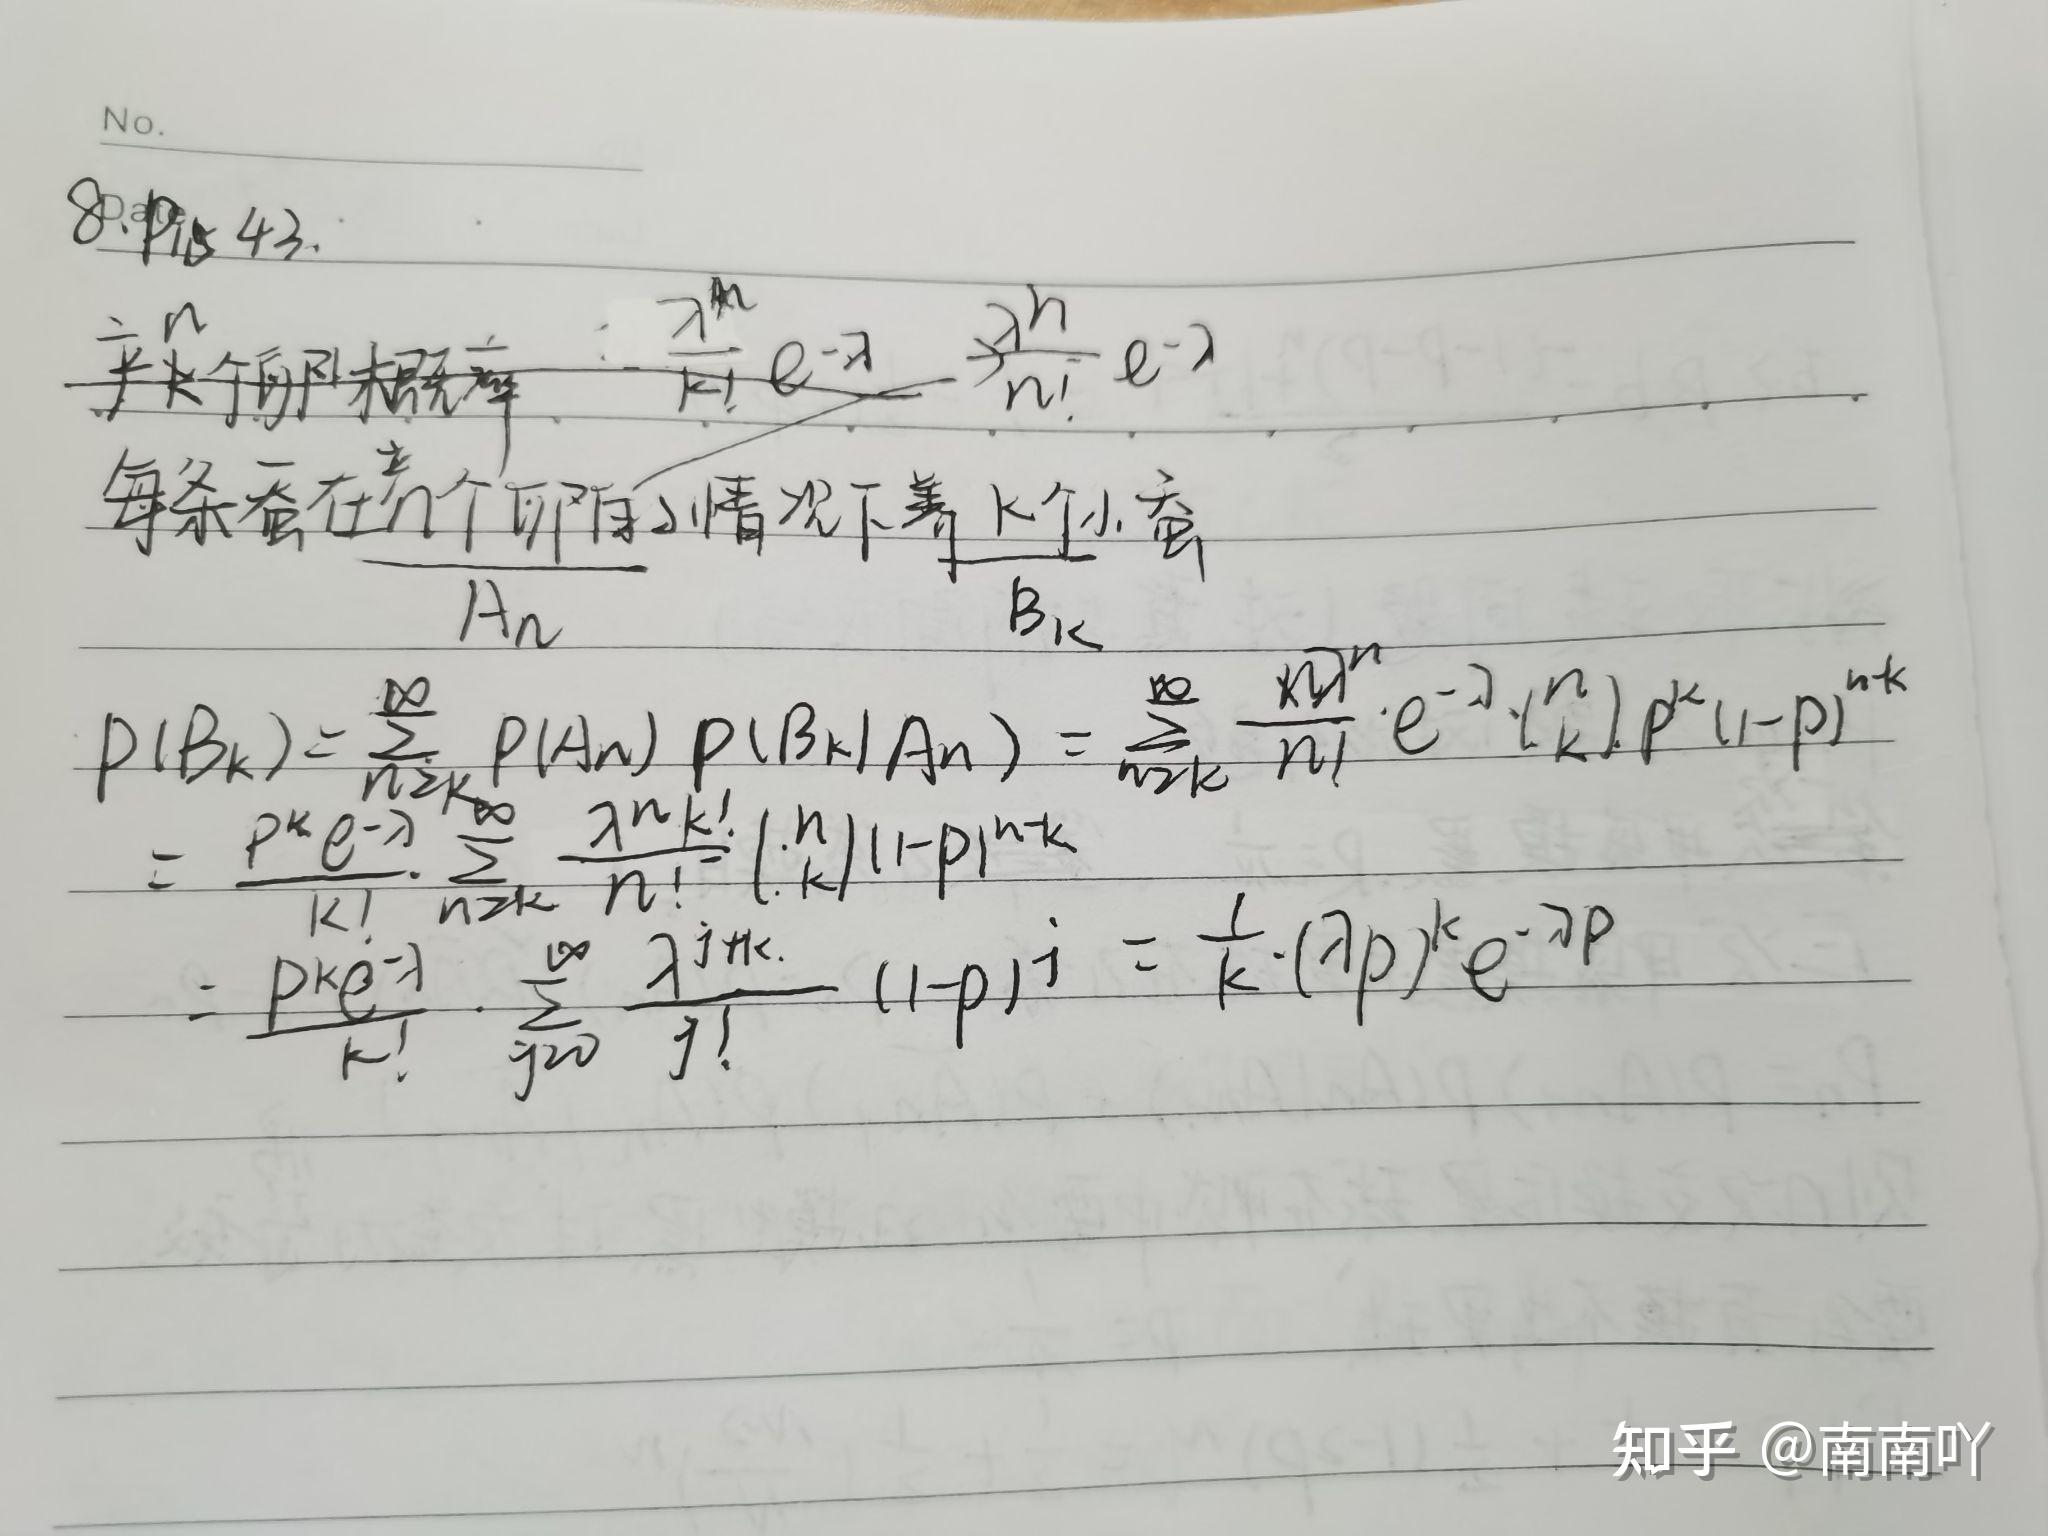 No.
Date
8. P15 43.
产n个卵概率 λ^n/k! e^{-λ} → λ^n/n! e^{-λ}
每条蚕在产n个卵的情况下养k个小蚕
An Bk
P(Bk) = ∑_{n≥k}^∞ P(An) P(Bk|An) = ∑_{n≥k}^∞ λ^n/n! · e^{-λ} · (n k) · p^k (1-p)^{n-k}
= p^k e^{-λ}/k! · ∑_{n≥k}^∞ λ^n k!/n! (n k) (1-p)^{n-k}
= p^k e^{-λ}/k! · ∑_{j=0}^∞ λ^{j+k}/j! (1-p)^j = 1/k · (λp)^k e^{-λp}
知乎 @南南吖